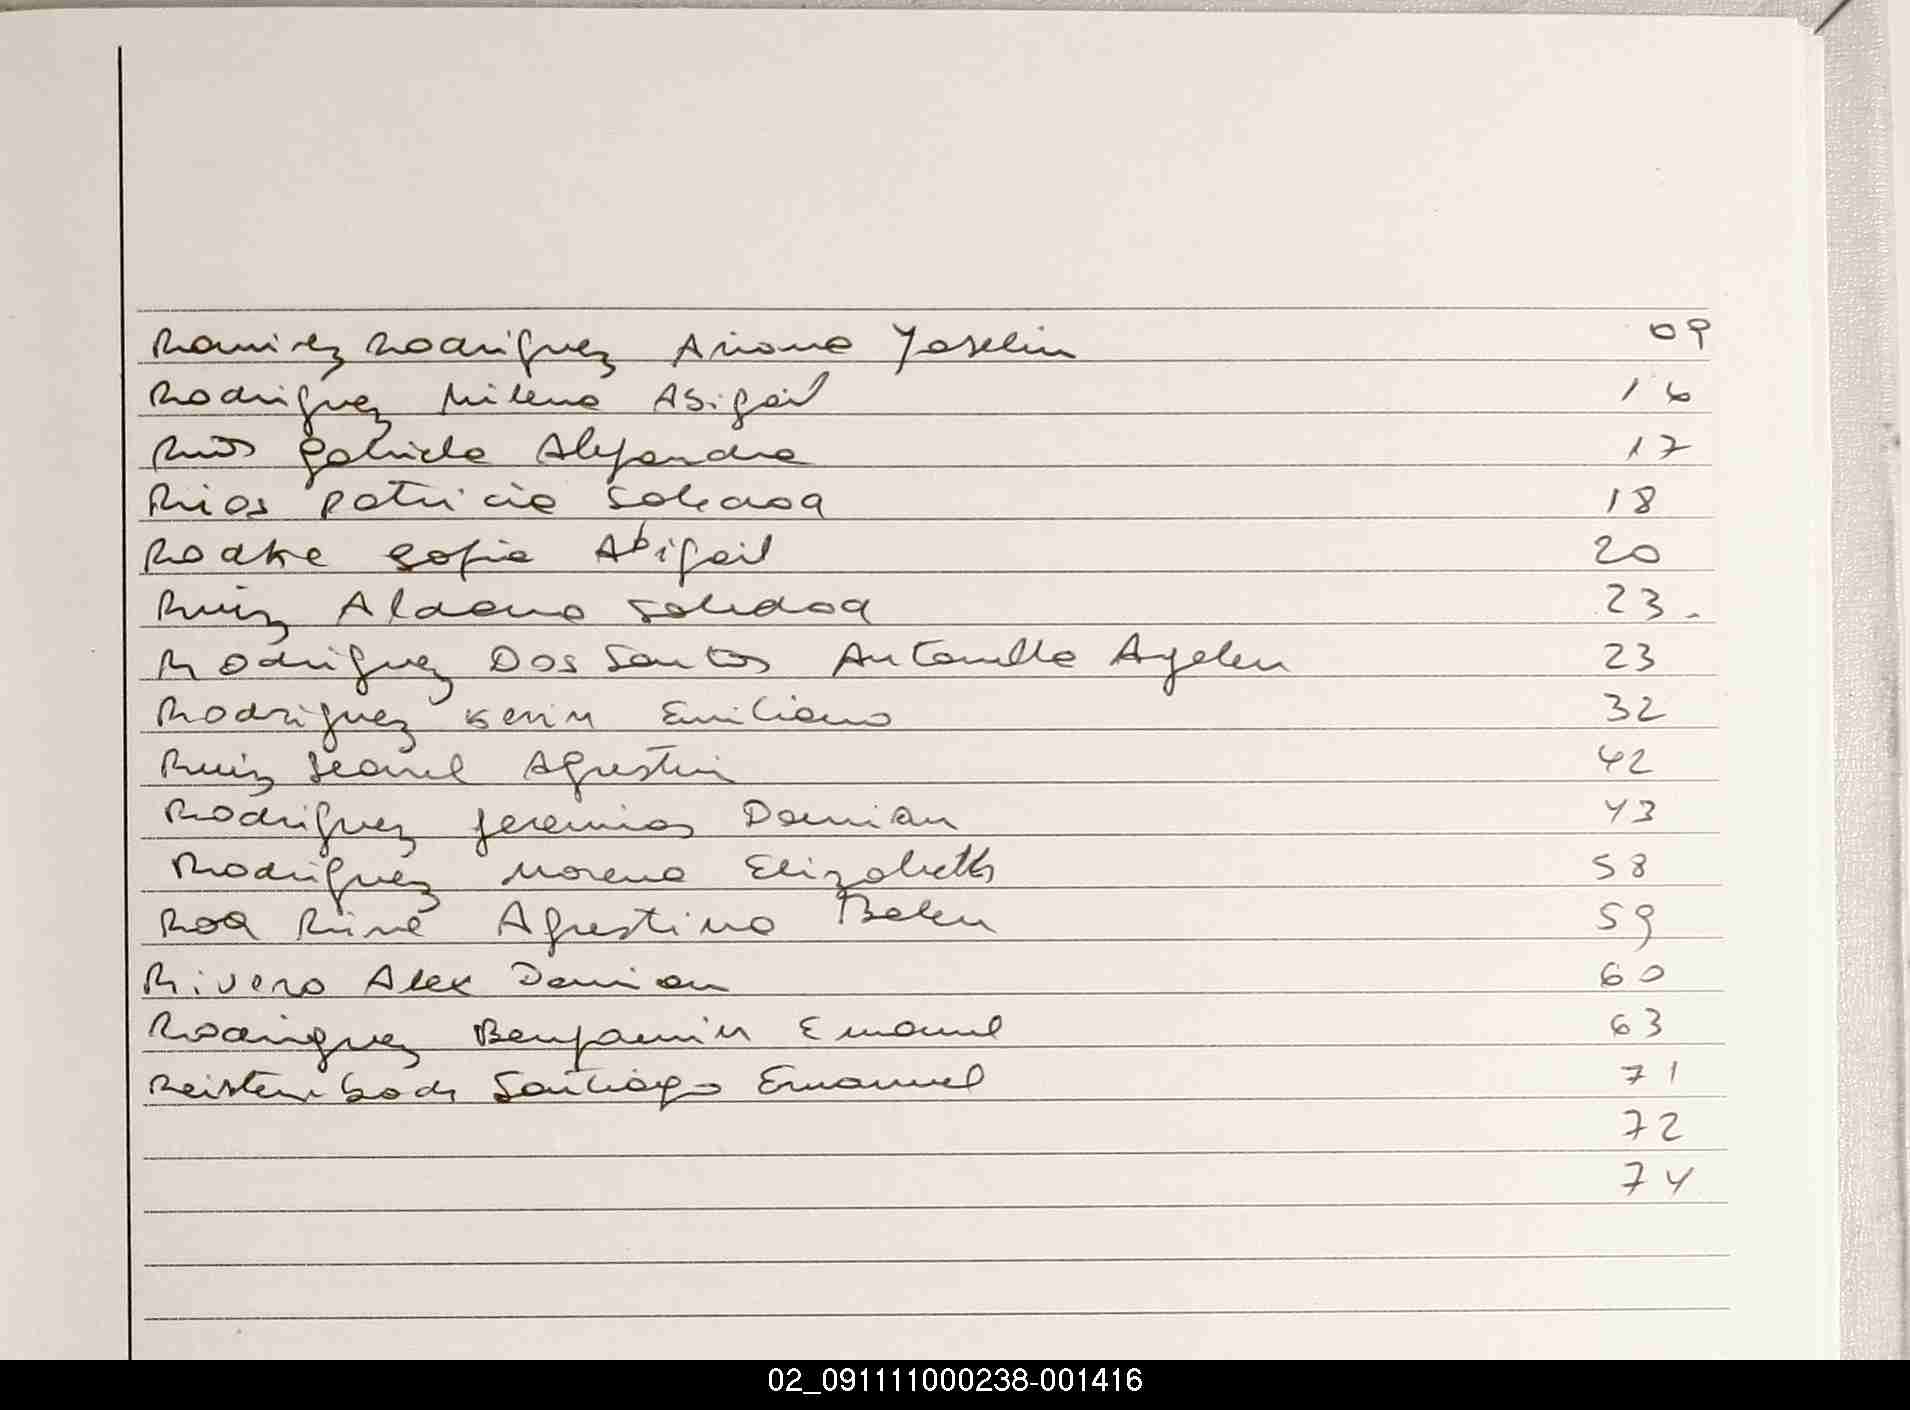 Ramirez Rodriguez Ariana Yoselin 09
Rodriguez Milena Abigail 16
Rios Gabriela Alejandra 17
Rios Patricia Soledad 18
Radke Sofia Abigail 20
Ruiz Aldana Soledad 23.
Rodriguez Dos Santos Antonella Ayelen 23
Rodriguez Kevin Emiliano 32
Ruiz Leonel Agustin 42
Rodriguez Jeremias Damian 43
Rodriguez Morena Elizabeth 58
Roa Agustina Belen 59
Rivero Alex Damian 60
Rodriguez Benjamin Emanuel 63
Santiago Emanuel 71
72
74
02_091111000238-001416